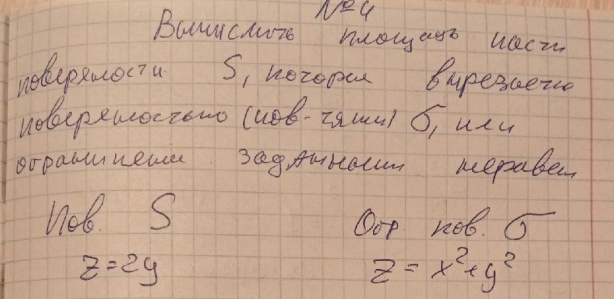 №4
Вычислить площадь части
поверхности S, которая вырезается
поверхностью (пов-тями) σ, или
ограничена заданными неравен
Пов. S Огр пов. σ
z=2y z = x²+y²